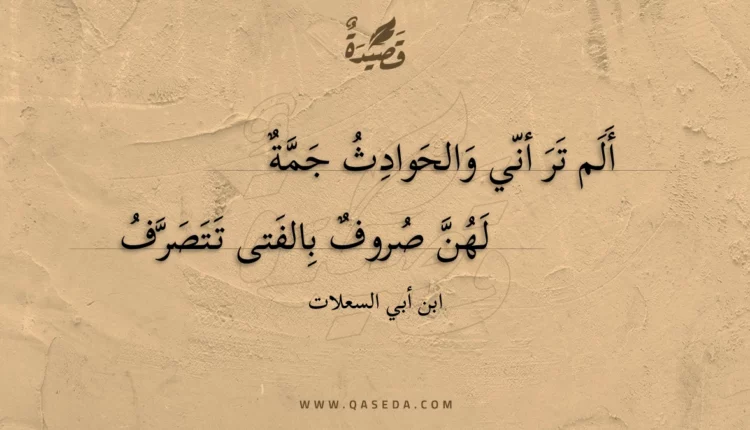 قَصِيْدَةٌ
أَلَم تَرَ أنّي وَالحَوادِثُ جَمَّةٌ
لَهُنَّ صُروفٌ بِالفَتى تَتَصَرَّفُ
ابن أبي السعلات
WWW.QASEDA.COM